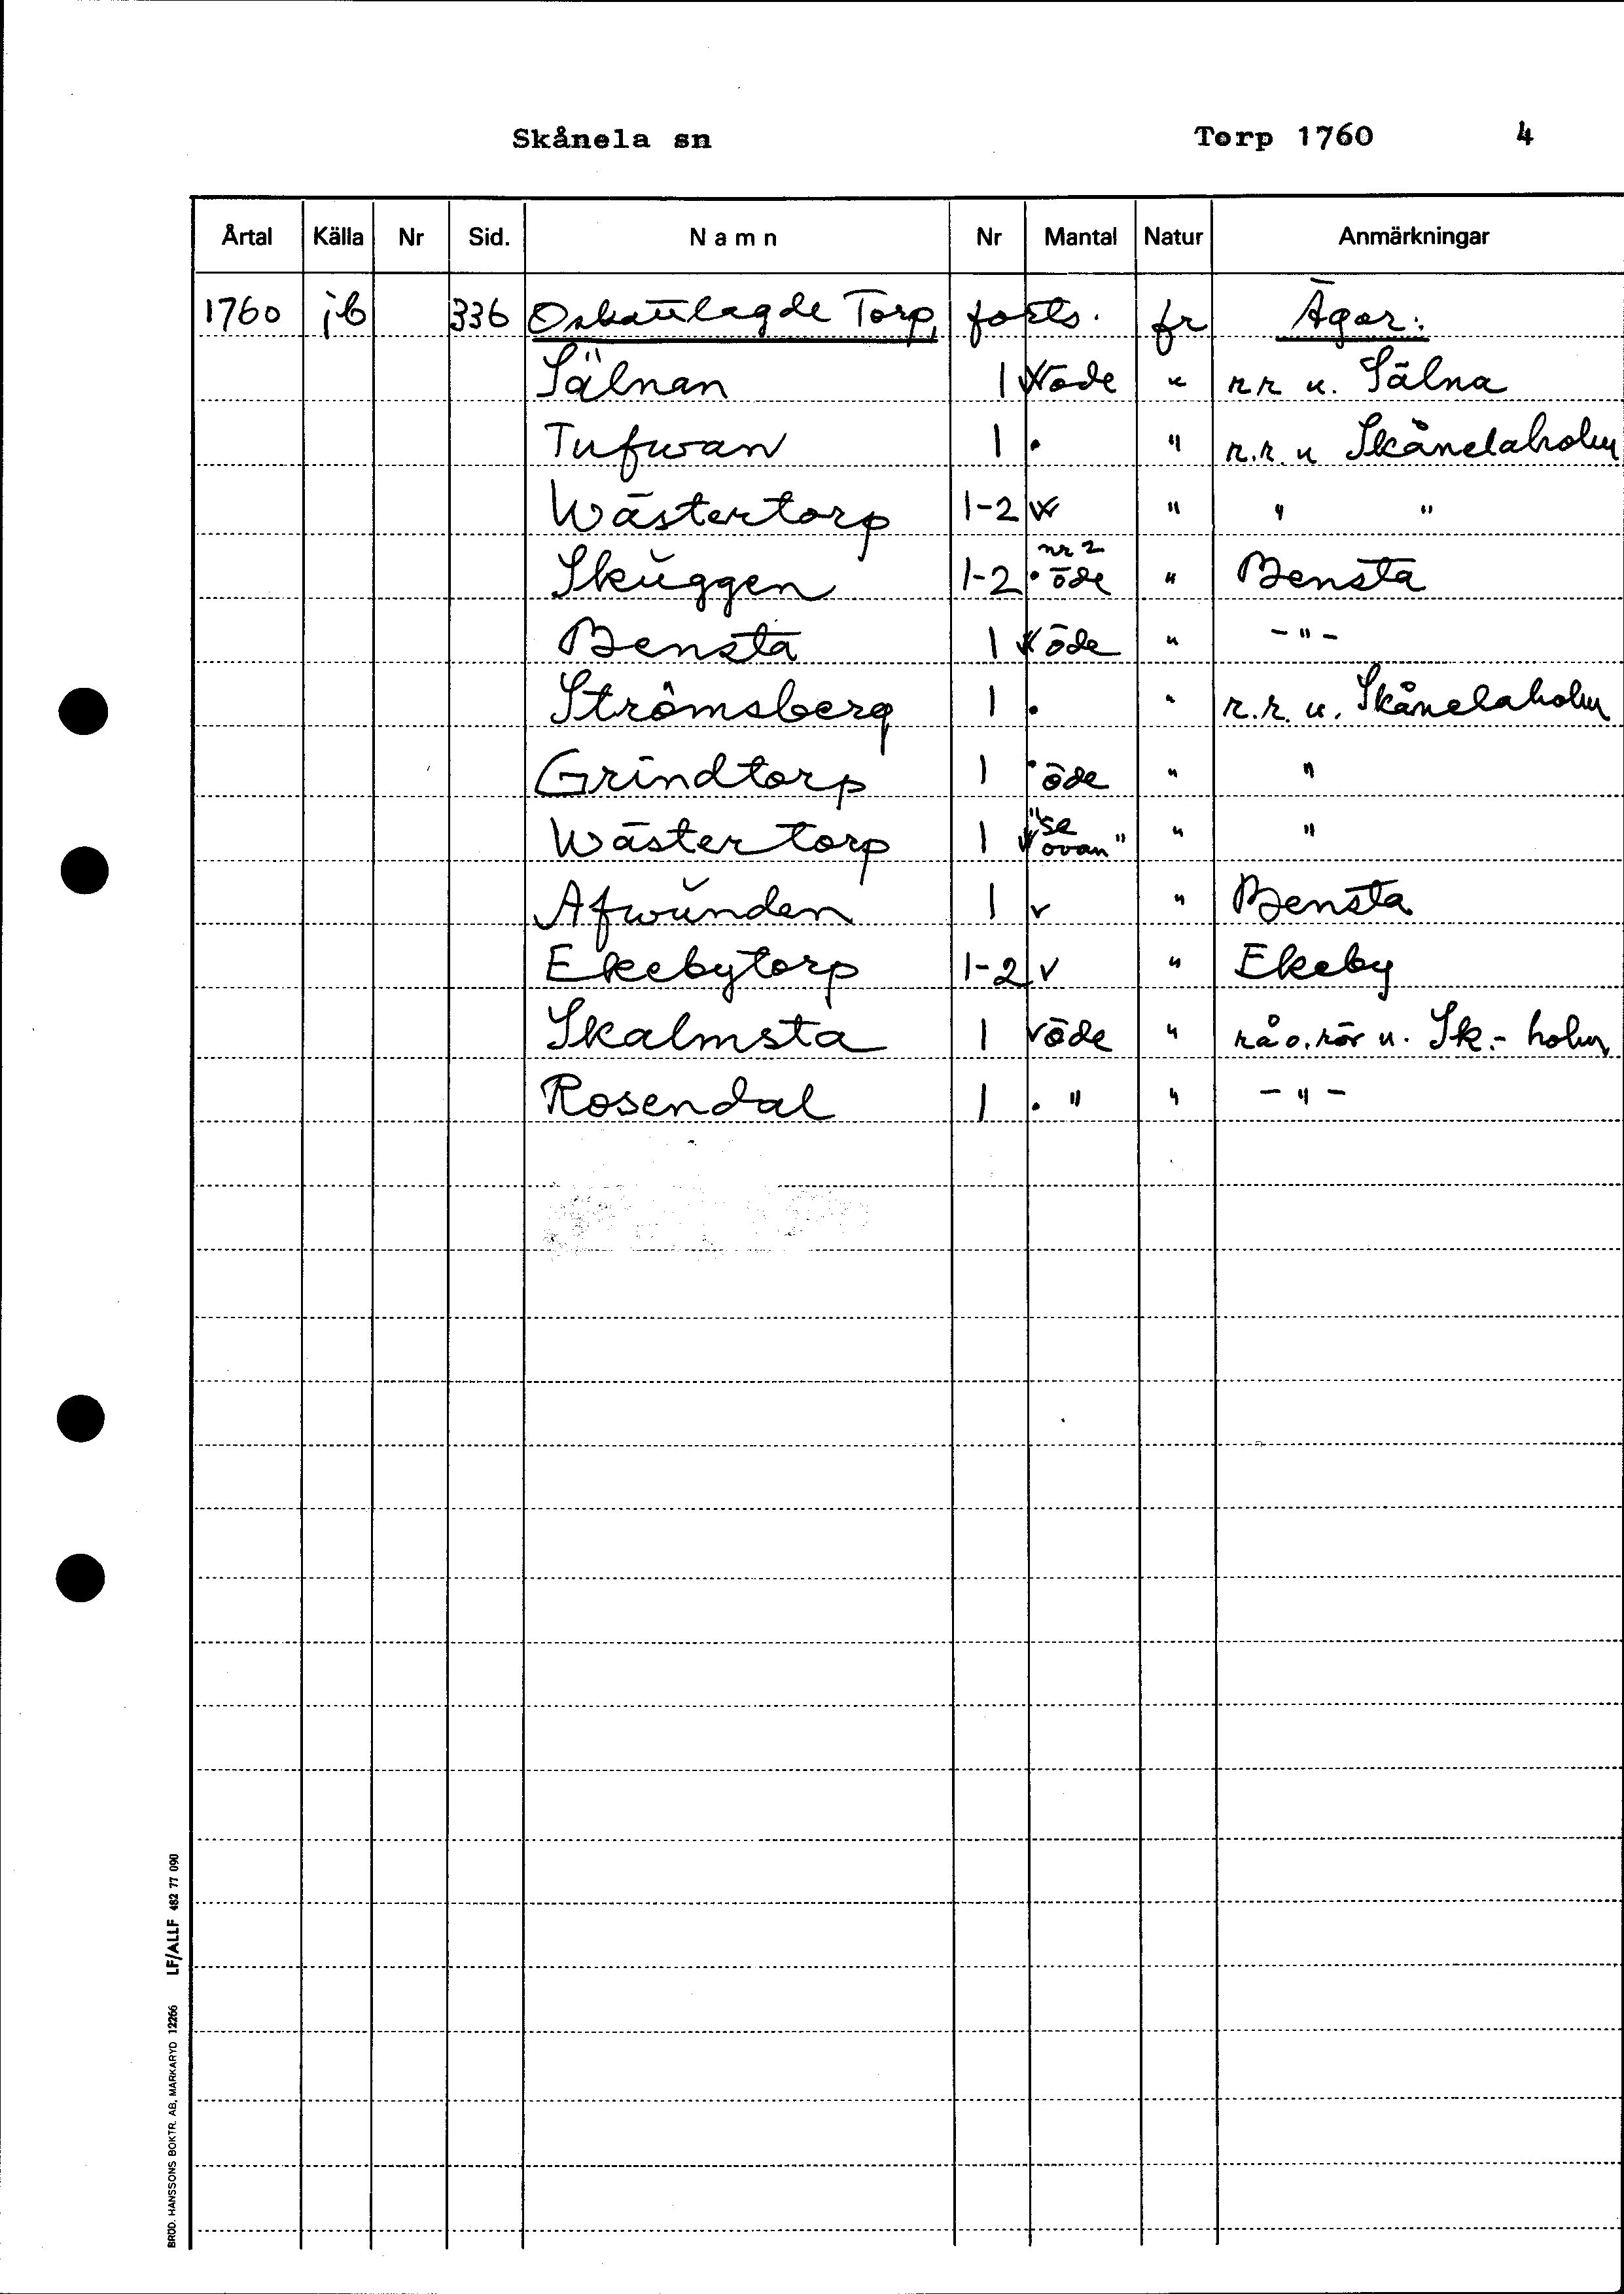 Skånela sn Torp 1760 4
Årtal Källa Nr Sid. Namn Nr Mantal Natur Anmärkningar
1760 jb 336 Oskattlagde Torp, forts. fr Ägor:
Sälnan 1 öde " r.r u. Sälna
Tufwan 1 . " r.r. u Skånelaholm
Wästertorp 1-2 W " " "
nr 2
Skuggen 1-2 . öde " Bensta
Bensta 1 öde " - " -
Strömsberg 1 . " r.r. u. Skånelaholm
Grindtorp 1 . öde " "
Wästertorp 1 "se ovan" " "
Afwunden 1 v " Bensta
Ekebytorp 1-2 v " Ekeby
Skalmsta 1 v öde " rå o. rör u. Sk.- holm
Rosendal 1 . " " - " -
BRÖD. HANSSONS BOKTR. AB, MARKARYD 12266 LF/ALLF 482 77 090